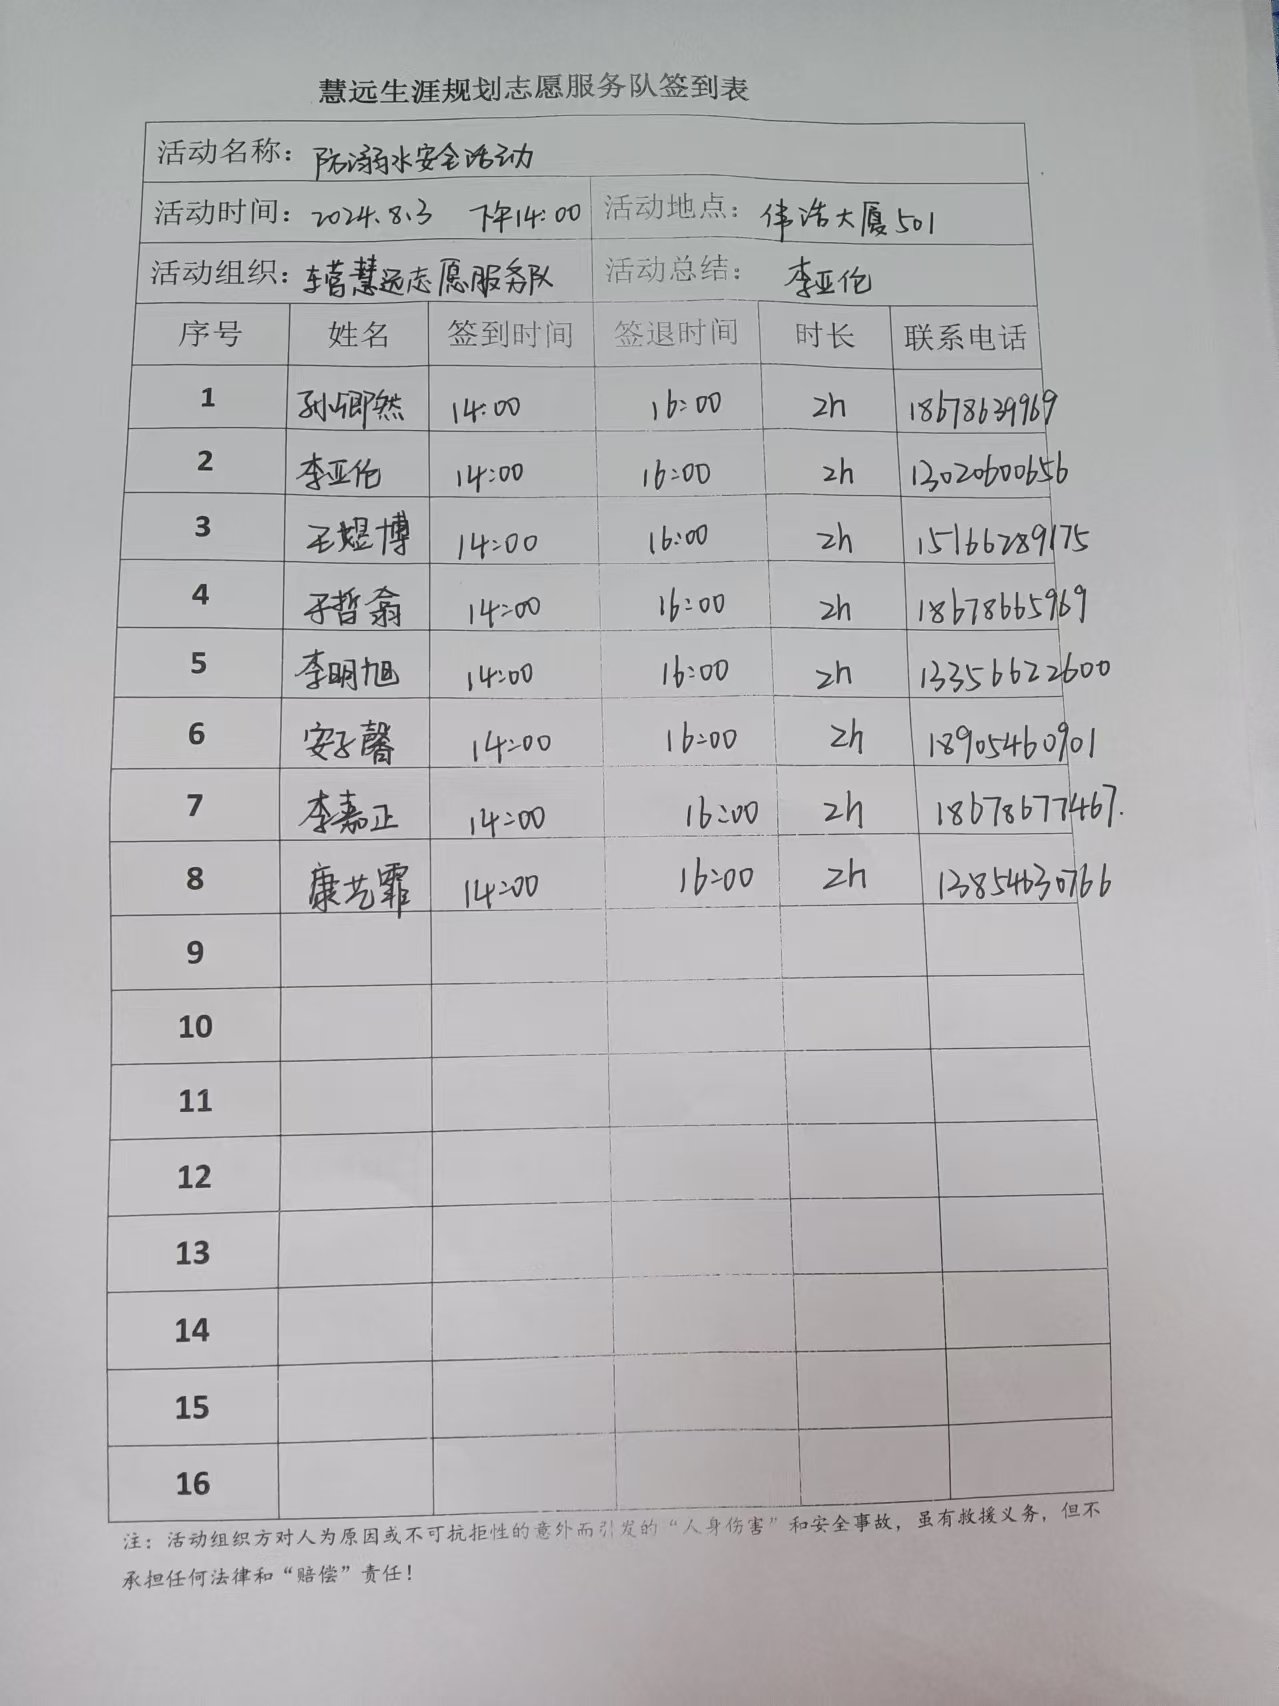 慧远生涯规划志愿服务队签到表
活动名称：防溺水安全活动
活动时间：2024.8.3 下午14:00 活动地点：伟浩大厦501
活动组织：东营慧远志愿服务队 活动总结：李亚伦
序号 姓名 签到时间 签退时间 时长 联系电话
1 孙卿然 14:00 16:00 2h 18678639969
2 李亚伦 14:00 16:00 2h 13020600656
3 王煜博 14:00 16:00 2h 15166289175
4 于哲翕 14:00 16:00 2h 18678665969
5 李明旭 14:00 16:00 2h 13356622600
6 安子馨 14:00 16:00 2h 18905460901
7 李嘉正 14:00 16:00 2h 18678677467.
8 康艺霏 14:00 16:00 2h 13854630766
9
10
11
12
13
14
15
16
注：活动组织方对人为原因或不可抗拒性的意外而引发的“人身伤害”和安全事故，虽有救援义务，但不
承担任何法律和“赔偿”责任！